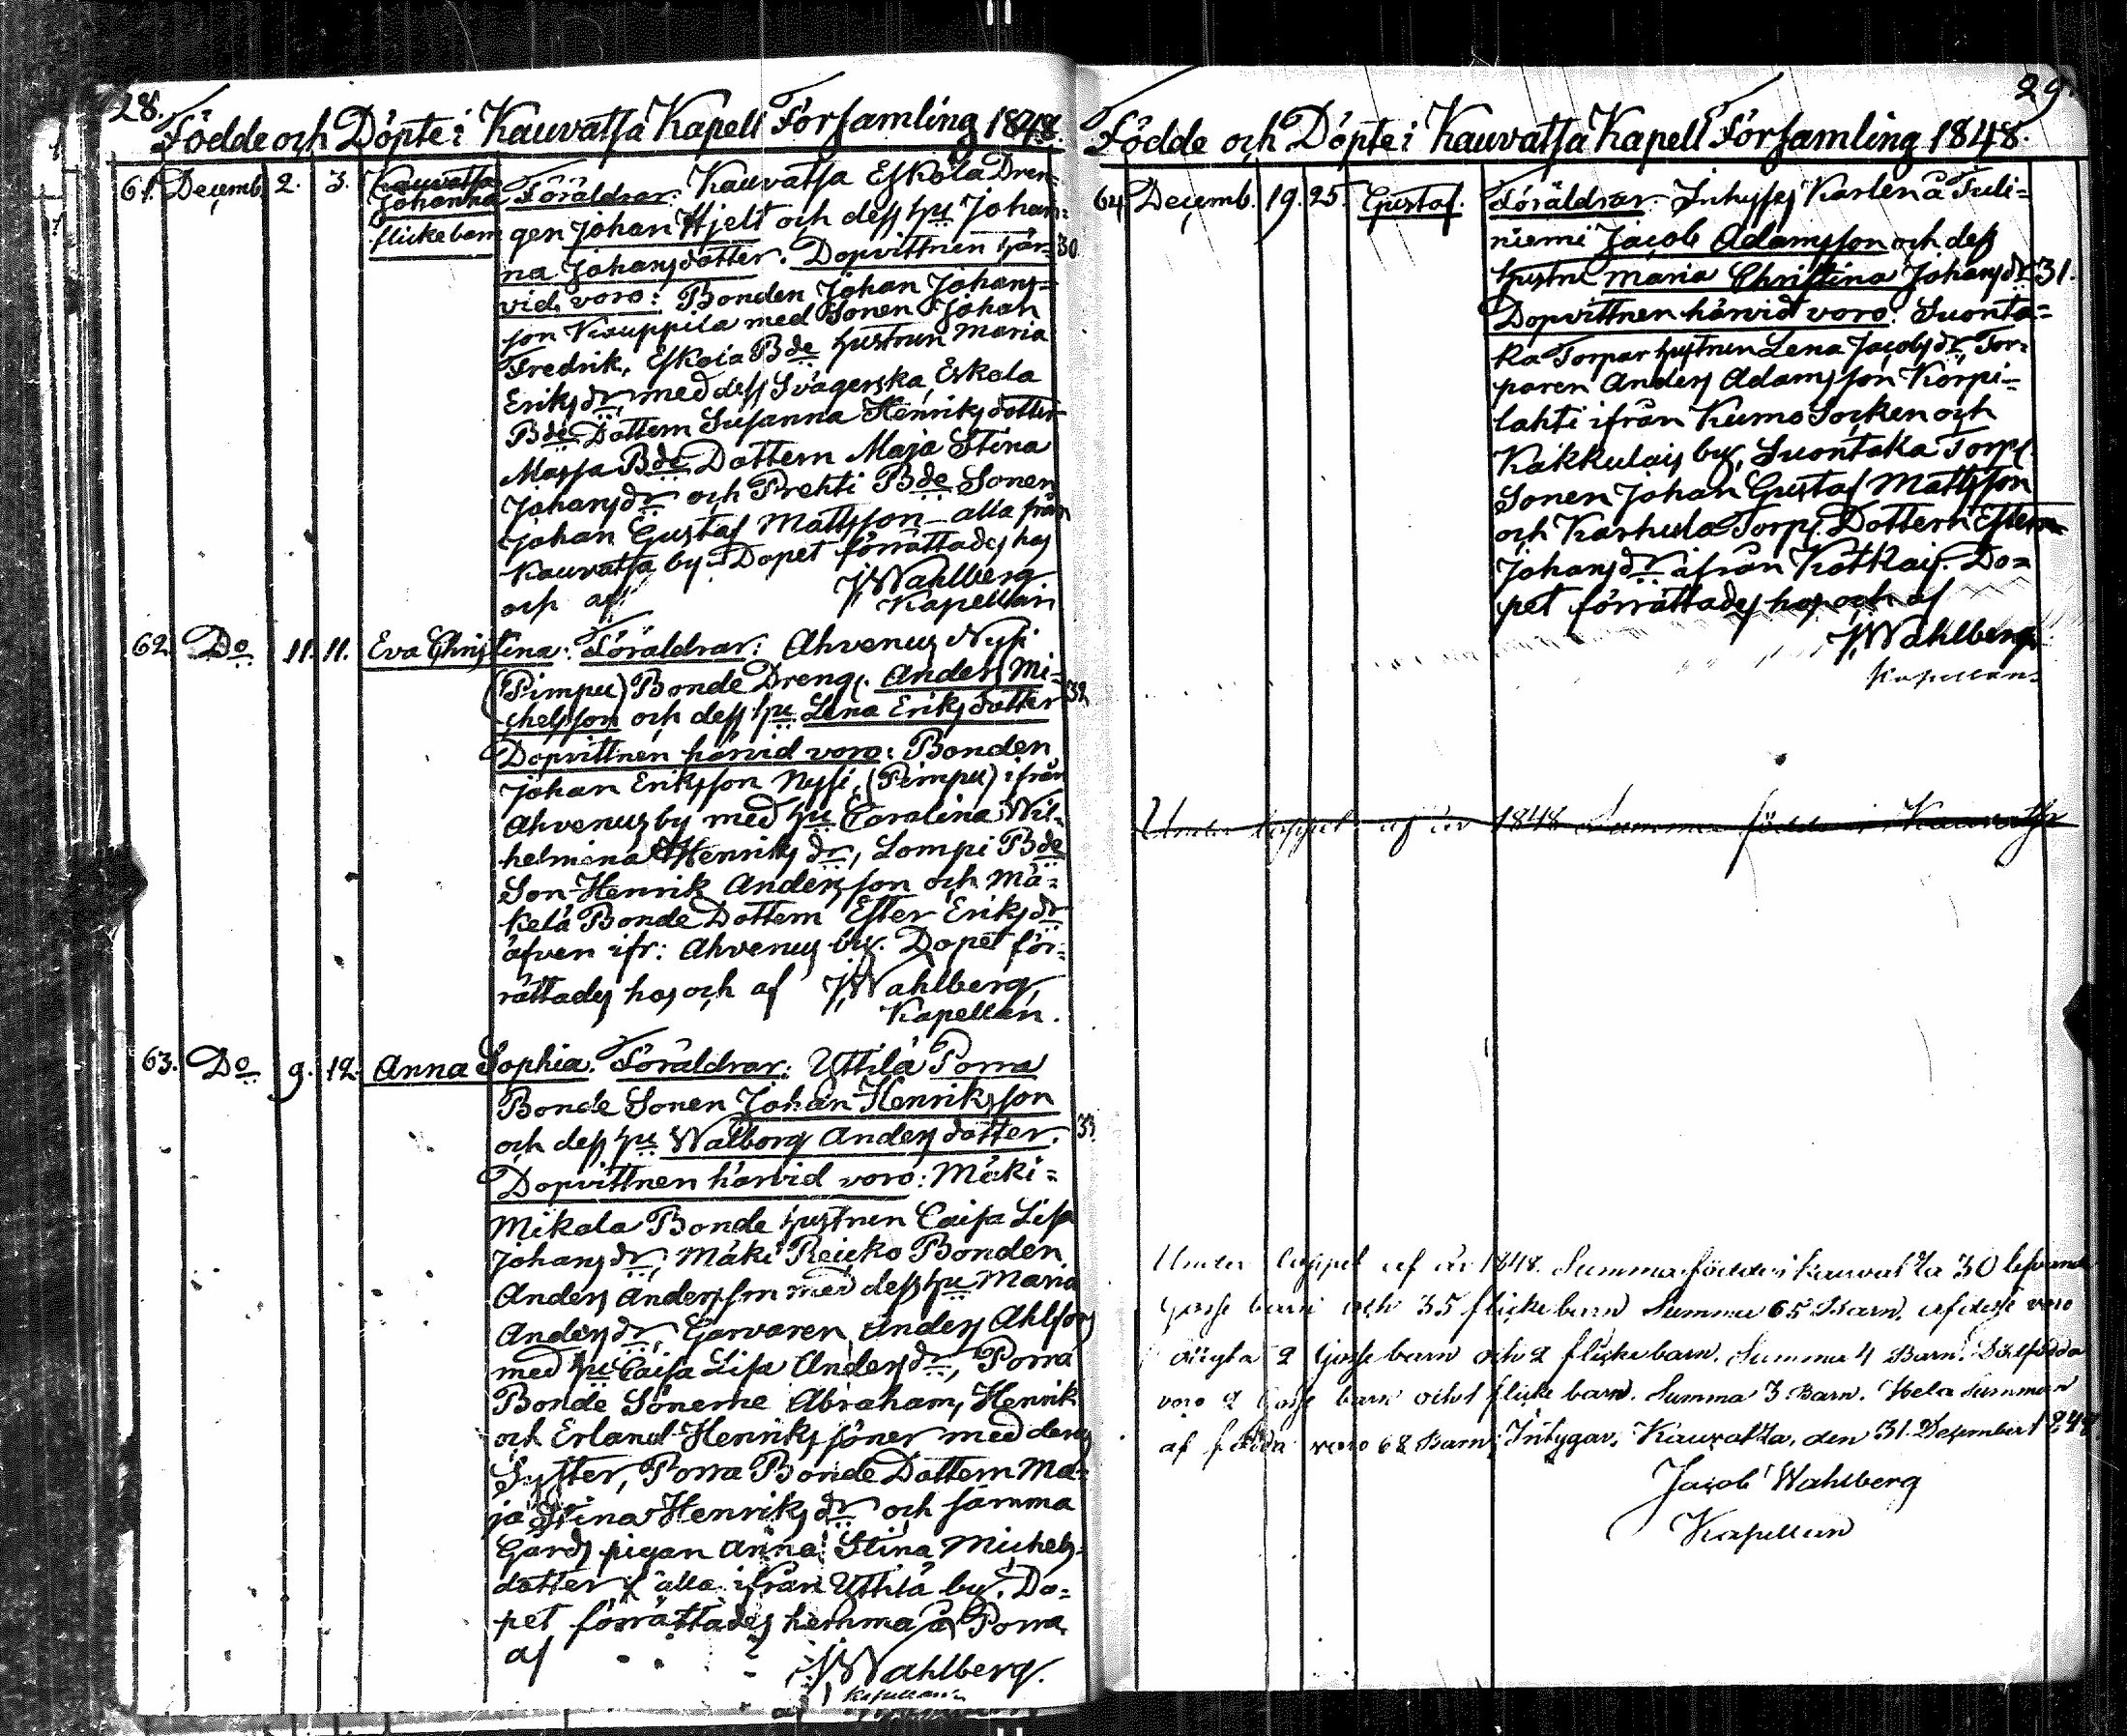 28.
Födde och Döpte i Kauvatsa Kapell Församling 1848.
61. Decemb. 2. 3. Kauvatsa Föräldrar: Kauvatsa Eskola Dren-
Johanna
flickebarn gen Johan Hjelt och dess hu Johan- 30
na Johansdotter. Dopvittnen här-
vid voro: Bonden Johan Johans-
son Kauppila med Sonen Johan
Fredrik, Eskola Bde hustrun Maria
Eriksdr, med dess Svägerska, Eskola
Bde Dottern Susanna Henriksdotter
Massa Bde Dottern Maja Stina
Johansdr och Prehti Bde Sonen
Johan Gustaf Mattsson - alla från
Kauvatsa by. Dopet förrättades hos
och af J. Wahlberg.
Kapellan
62. Do 11. 11. Eva Christina. Föräldrar: Ahvenus Nysi
(Pimpu) Bonde Dreng. Anders Mi- 32
chelsson och dess hu Lena Eriksdotter
Dopvittnen härvid voro: Bonden
Johan Eriksson Nysi, (Pimpu) ifrån
Ahvenus by med hu Carolina Wil-
helmina Henriksdr, Lompi Bde
Son Henrik Andersson och Mä-
kelä Bonde Dottern Ester Eriksdr
äfven ifr: Ahvenus by. Dopet för-
rättades hos och af J. Wahlberg,
Kapellan.
63. Do 9. 12. Anna Sophia. Föräldrar: Yttilä Porra
Bonde Sonen Johan Henriksson
och dess hu Walborg Andersdotter. 33.
Dopvittnen härvid voro: Mäki-
Mikola Bonde hustrun Caisa Lisa
Johansdr, Mäki Reicko Bonden
Anders Andersson med dess hu Maria
Andersdr, Garvaren Anders Ahlfors
med hu Caisa Lisa Andersdr, Porra
Bonde Sönerne Abraham, Henrik
och Erland Henrikssöner med deras
Syster, Porra Bonde Dottern Ma-
ja Stina Henriksdr och samma
Gårds pigan Anna Stina Michels-
dotter alla ifrån Yttilä by. Do-
pet förrättades hemma å Porra
af J. Wahlberg.
Kapellan
29.
Födde och Döpte i Kauvatsa Kapell Församling 1848.
64. Decemb. 19. 25. Gustaf. Föräldrar: Inhyses Karlen å Tuli-
niemi Jacob Adamsson och dess
hustru Maria Christina Johansdr 31.
Dopvittnen härvid voro: Suonta-
ka Torpar hustrun Lena Jacobsdr, Tor-
paren Anders Adamsson Korpi-
lahti ifrån Kumo Socken och
Kakkulais by, Suontaka Torp.
Sonen Johan Gustaf Mattsson
och Karhula Torps Dottern Ester
Johansdr ifrån Kotkais. Do-
pet förrättades hos och af
J. Wahlberg.
Kapellan.
Under loppet af år 1848 Summa födde i Kauvatsa
Under loppet af år 1848. Summa födde i Kauvatsa 30 lefvande
Gosse barn och 35 flicke barn Summa 65 Barn. af desse voro
oägta 2 Gosse barn och 2 flicke barn. Summa 4 Barn. Dödfödda
voro 2 Gosse barn och 1 flicke barn. Summa 3 Barn. Hela Summan
af födda voro 68 Barn; Intygar. Kauvatsa, den 31. December 1848.
Jacob Wahlberg
Kapellan